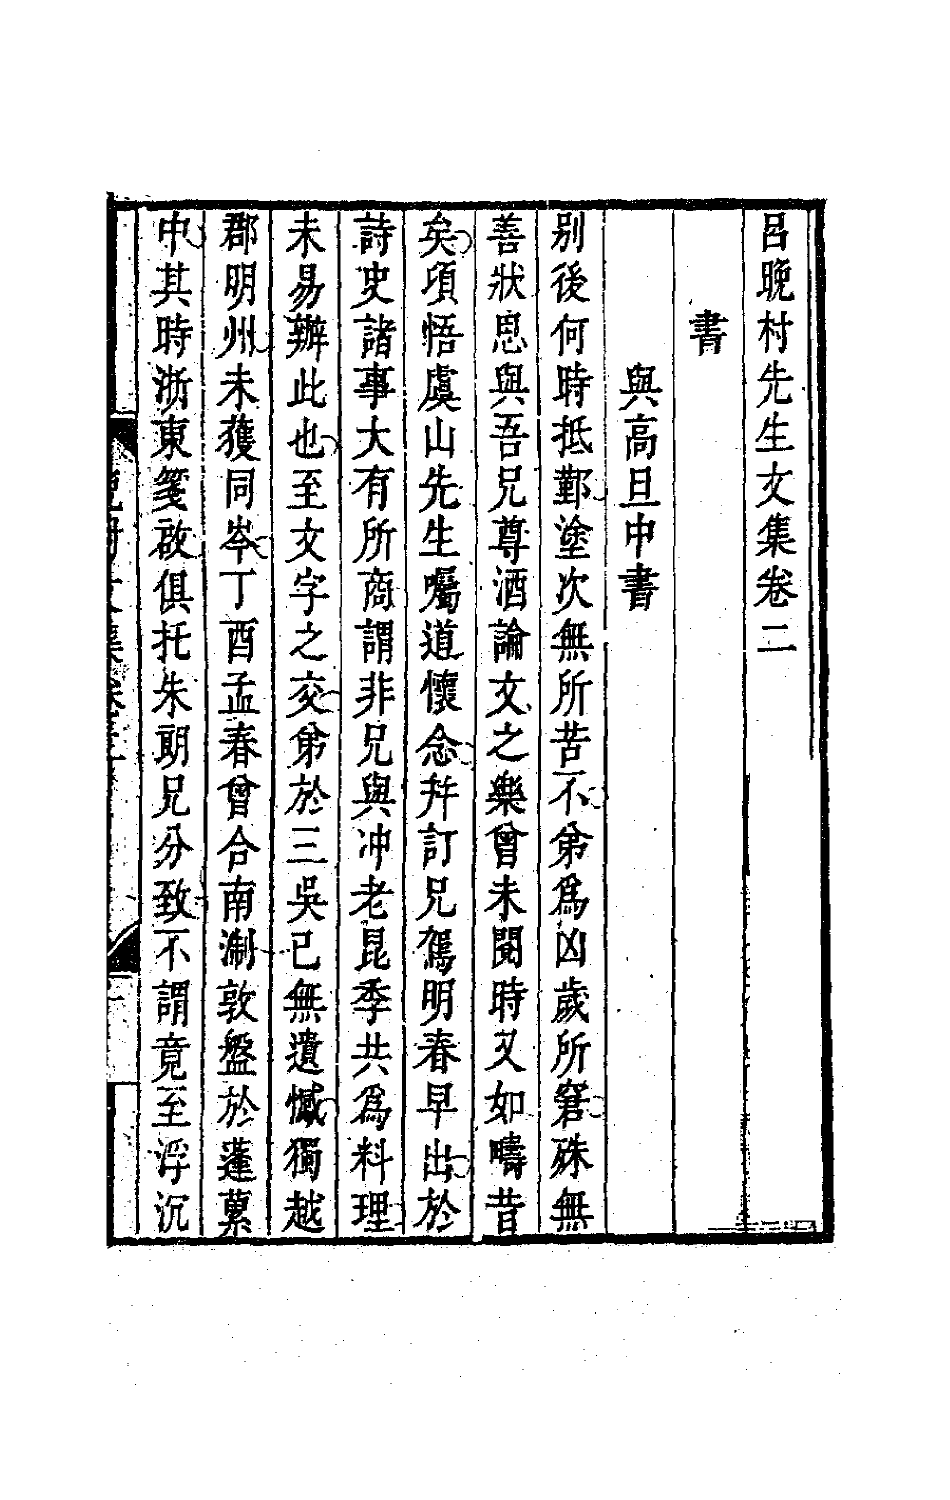 呂晚村先生文集卷二
書
與高旦中書
别後何時抵鄞塗次無所苦不第爲凶歲所窘殊無
善狀思與吾兄尊酒論文之樂曾未閱時又如疇昔
矣頃悟虞山先生囑道懷念并訂兄駕明春早出於
詩史諸事大有所商謂非兄與冲老昆季共爲料理
未易辦此也至文字之交弟於三吳已無遺憾獨越
郡明州未獲同岑丁酉孟春曾合南淛敦盤於蓬蔂
中其時浙東箋啟俱托朱朗兄分致不謂竟至浮沉